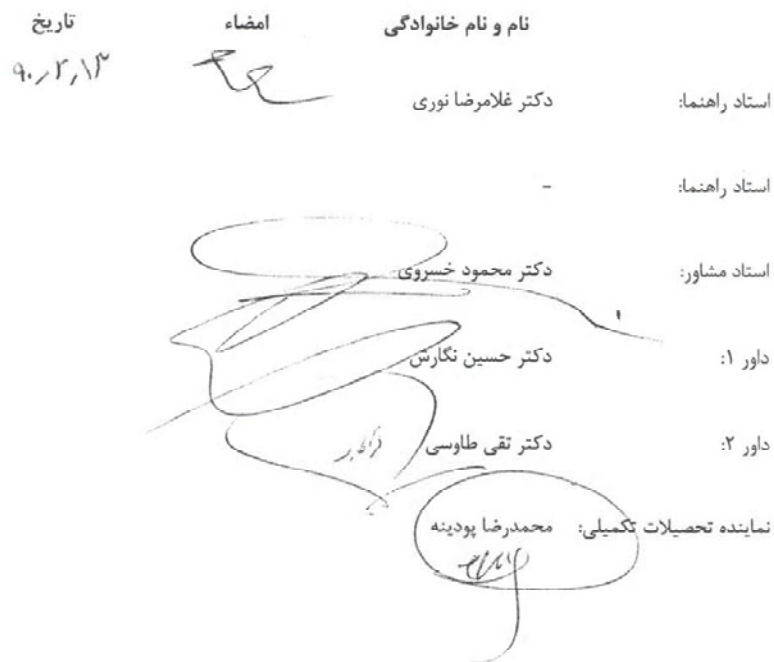 نام و نام خانوادگی امضاء تاریخ
استاد راهنما: دکتر غلامرضا نوری ۹۰/۲/۱۳
استاد راهنما: -
استاد مشاور: دکتر محمود خسروی
داور ۱: دکتر حسین نگارش
داور ۲: دکتر تقی طاوسی
نماینده تحصیلات تکمیلی: محمدرضا پودینه